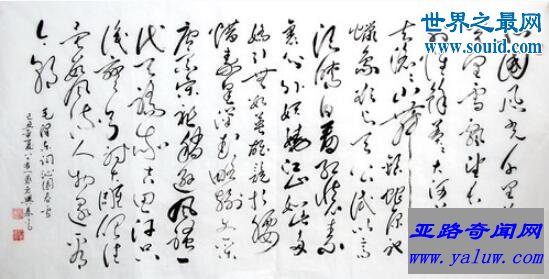 世界之最网
www.souid.com
北国风光千里
万里雪飘望长
内外惟余莽莽大河
去滔滔山舞银蛇原驰
蜡象欲与天公试比高
须晴日看红装素
裹分外妖娆江山如此多
娇引无数英雄竞折腰
惜秦皇汉武略输文采
唐宗宋祖稍逊风骚一
代天骄成吉思汗只
识弯弓射大雕俱往
矣数风流人物还看
今朝
毛泽东词沁园春雪
己丑年夏
亚路奇闻网
www.yaluw.com